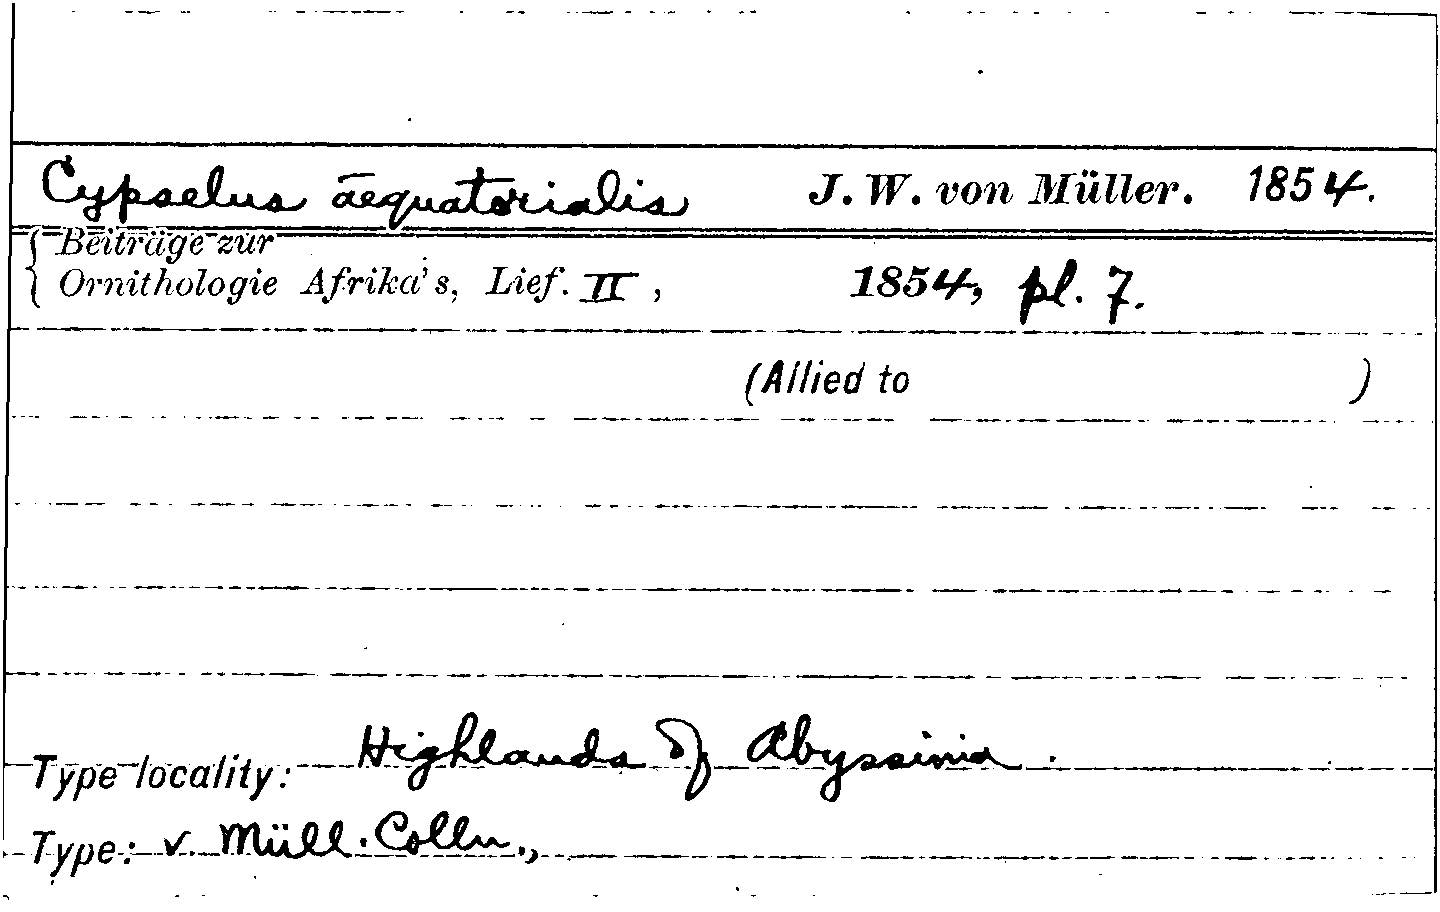 Cypselus aequatorialis J. W. von Müller. 1854.
Beiträge zur
Ornithologie Afrika's, Lief. II, 1854, pl. 7.
(Allied to )
Type locality: Highlands of Abyssinia.
Type: v. Müll. Colln.,